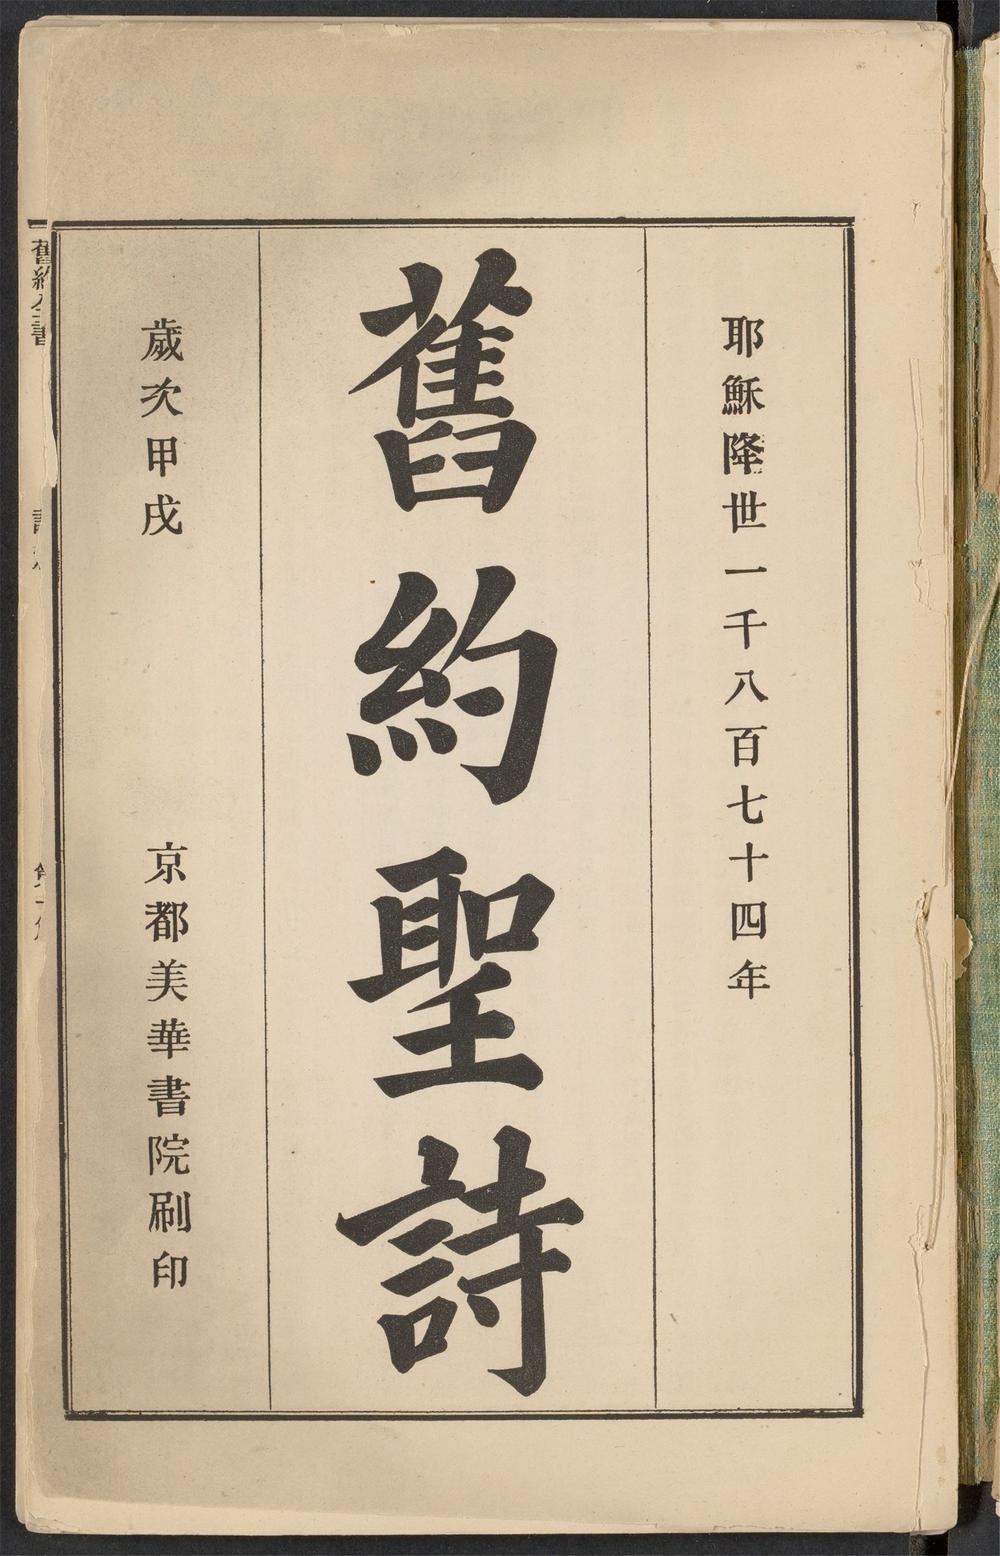 耶穌降世一千八百七十四年
舊約聖詩
歲次甲戌
京都美華書院刷印
舊約全書